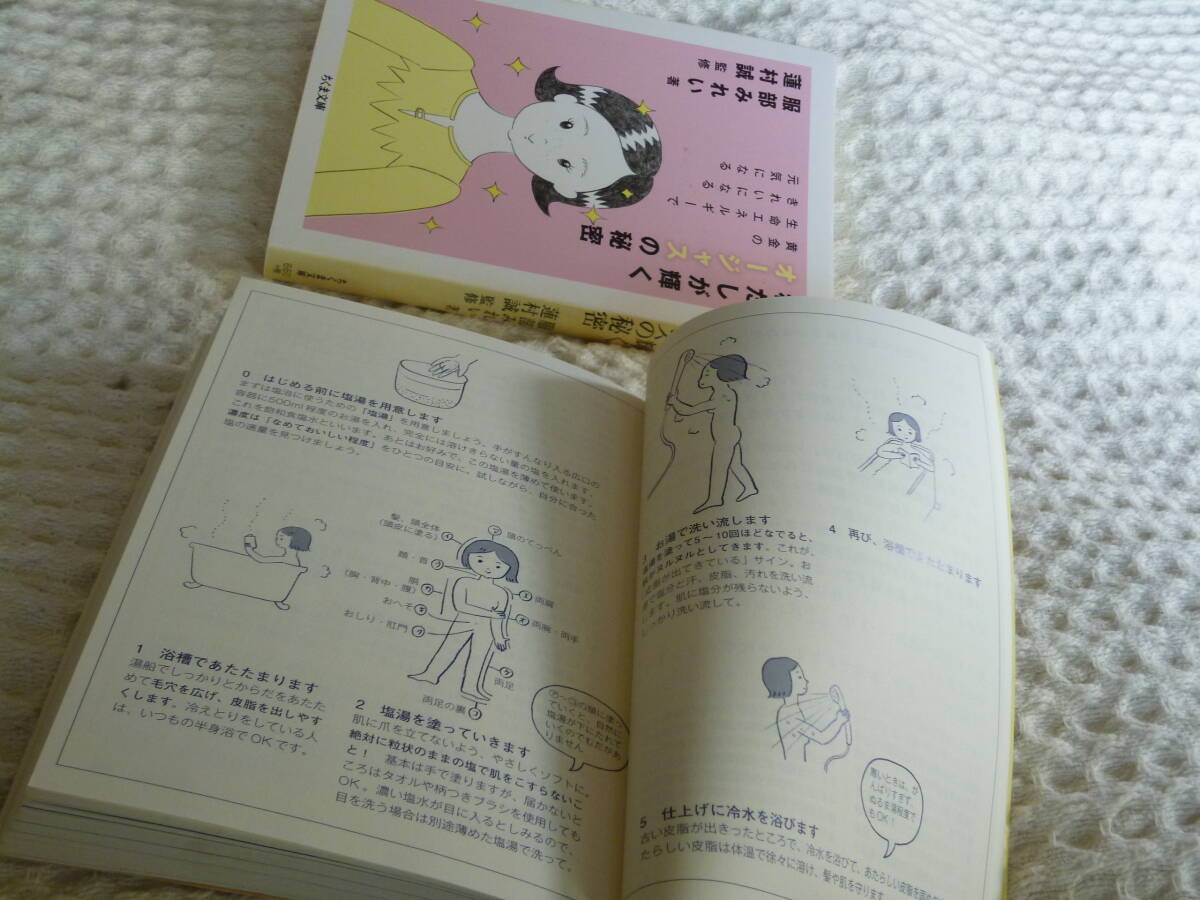 わたしが輝く
オージャスの秘密
黄金の
生命エネルギーで
きれいになる
元気になる
服部みれい 著
蓮村誠 監修
ちくま文庫
の秘密
服部みれい 著
蓮村誠 監修
ちくま文庫
0 はじめる前に塩湯を用意します
まずは塩浴に使うための「塩湯」を用意しましょう。手がすんなり入る広口の
容器に500ml程度のお湯を入れ、完全には溶けきらない量の塩を入れます。
これを飽和食塩水といいます。あとはお好みで、この塩湯を薄めて使います。
濃度は「なめておいしい程度」をひとつの目安に。試しながら、自分に合った
塩の適量を見つけましょう。
1 浴槽であたたまります
湯船でしっかりとからだをあたた
めて毛穴を広げ、皮脂を出しやす
くします。冷えとりをしている人
は、いつもの半身浴でOKです。
髪、頭全体
(頭皮に塗る)
イ
ア
頭のてっぺん
顔・首
ウ
胴
(胸・背中・
腹)
エ
両肩
おへそ
オ
両腕・両手
おしり・肛門
両足
両足の裏
2 塩湯を塗っていきます
肌に爪を立てないよう、やさしくソフトに。
絶対に粒状のままの塩で肌をこすらないこ
と! 基本は手で塗りますが、届かないと
ころはタオルや柄つきブラシを使用しても
OK。濃い塩水が目に入るとしみるので、
目を洗う場合は別途薄めた塩湯で洗って。
の順に塗っ
ていくと、自然に
塩湯が下にたれて
いくのでむだがあ
りません
3 お湯で洗い流します
塩湯を塗って5〜10回ほどなでると、
ヌルヌルとしてきます。これが、
皮脂が出てきている」サイン。お
湯で塩分と汗、皮脂、汚れを洗い流
します。肌に塩分が残らないよう、
しっかり洗い流して。
4 再び、浴槽であたたまります
5 仕上げに冷水を浴びます
古い皮脂が出きったところで、冷水を浴びて、あたらしい皮脂を
たらしい皮脂は体温で徐々に溶け、髪や肌を守ります
寒いときは、が
んばりすぎず、
ぬるま湯程度で
もOK!